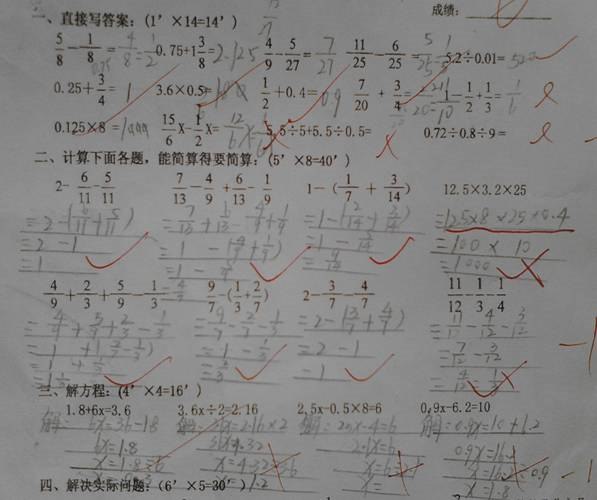 成绩：
一、直接写答案：(1′×14=14′)
5/8 - 1/8 = 4/8 = 1/2 0.75+1 3/8 = 2.125 4/9 - 5/27 = 7/27 11/25 - 6/25 = 5/25 = 1/5 5.2÷0.01= 520
0.25+ 3/4 = 1 3.6×0.5= 1/2 +0.4= 0.9 7/20 + 3/4 = 1/2 + 1/3 = 1/6
0.125×8 = 15/6 X- 1/2 X= 5.5÷5+5.5÷0.5= 0.72÷0.8÷9=
二、计算下面各题，能简算得要简算：(5′×8=40′)
2- 6/11 - 5/11 7/13 - 4/9 + 6/13 - 1/9 1－( 1/7 + 3/14 ) 12.5×3.2×25
=2-(6/11+5/11) =7/13+6/13-4/9+1/9 =1-(2/14+3/14) =12.5×8×25×0.4
=2-1 =1-(4/9+1/9) =1-5/14 =100×10
=1 =1- =9/14 =1000
4/9 + 2/3 + 5/9 - 1/3 9/7 -( 1/3 + 2/7 ) 2- 3/7 - 4/7 11/12 - 1/3 - 1/4
=4/9+5/9+2/3-1/3 =9/7-2/7-1/3 =2-(3/7+4/7) =11/12-4/12-3/12
=1+(2/3-1/3) =1-1/3 =2-1 =7/12-3/12
=1+1/3 =2/3 =1 =4/12=1/3
=1 1/3
三、解方程：(4′×4=16′)
1.8+6x=3.6 3.6x÷2=2.16 2.5x-0.5×8=6 0.9x-6.2=10
解：6x=3.6-1.8 解：3.6x=2.16×2 解：2.5x-4=6 解：0.9x=10+6.2
6x=1.8 3.6x=4.32 0.9x=16.2
x=1.8÷6 x=4.32÷3.6 x=16.2÷0.9
x=1.2 x=1.8
四、解决实际问题：(6′×5=30′)